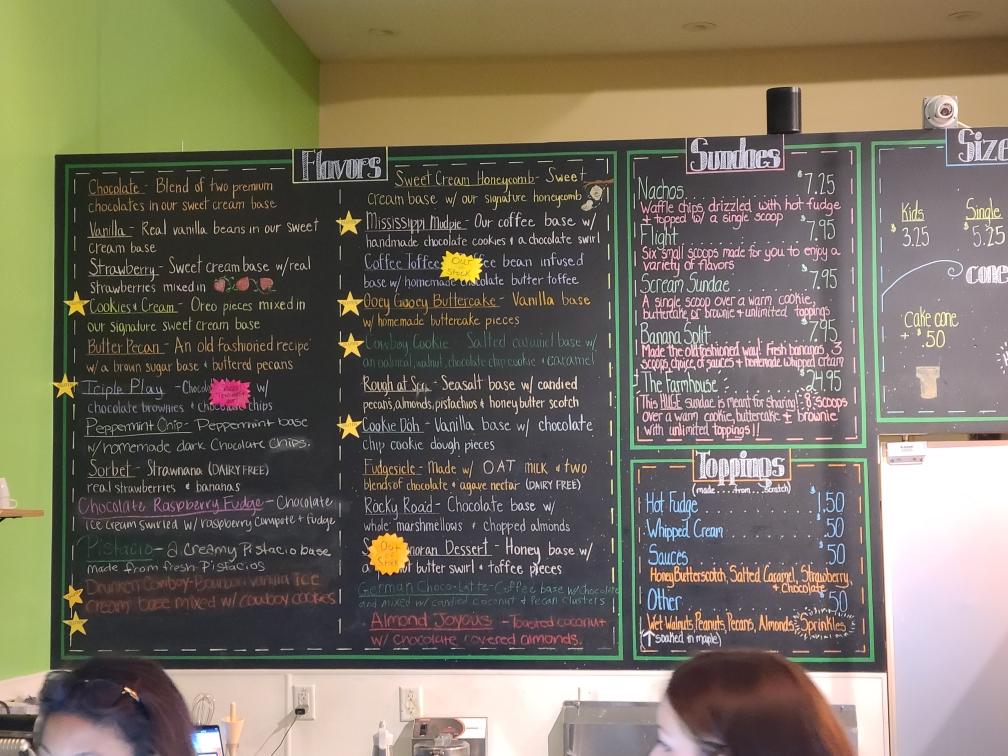 Flavors
Chocolate - Blend of two premium
chocolates in our sweet cream base
Vanilla - Real vanilla beans in our sweet
cream base
Strawberry - Sweet cream base w/real
Strawberries mixed in
Cookies & Cream - Oreo pieces mixed in
our signature sweet cream base
Butter Pecan - An old fashioned recipe
w/ a brown sugar base & buttered pecans
Triple Play - w/
chocolate brownies & chocolate chips
Peppermint Chip - Peppermint base
w/homemade dark chocolate chips.
Sorbet - Strawnana (DAIRY FREE)
real strawberries & bananas
Chocolate Raspberry Fudge - Chocolate
ice cream swirled w/ raspberry compote + fudge
Pistacio - a creamy Pistacio base
made from fresh Pistacios
Drunken Cowboy - Bourbon vanilla ice
cream base mixed w/ cowboy cookies
Sweet Cream Honeycomb - Sweet
cream base w/ our signature honeycomb
Mississippi Mudpie - Our coffee base w/
handmade chocolate cookies & a chocolate swirl
Coffee Toffee bean infused
Out
Stock
base w/ homemade chocolate butter toffee
Ooey Gooey Buttercake - Vanilla base
w/ homemade buttercake pieces
Cowboy Cookie - Salted caramel base w/
an oatmeal, walnut, chocolate chip cookie + caramel
Rough at Sea - Seasalt base w/ candied
pecans, almonds, pistachios & honey butter scotch
Cookie Doh - Vanilla base w/ chocolate
chip cookie dough pieces
Fudgesicle - Made w/ OAT MILK & two
blends of chocolate & agave nectar (DAIRY FREE)
Rocky Road - Chocolate base w/
whole marshmellows & chopped almonds
Dessert - Honey base w/
Out
of
Stock
butter swirl & toffee pieces
German Choco-Latte - Coffee base w/ Chocolate
and mixed w/ candied coconut & Pecan clusters
Almond Joyous - Toasted coconut
w/ chocolate covered almonds.
Sundaes
Nachos $7.25
Waffle chips drizzled with hot fudge
& topped by a single scoop
Flight 7.95
Six small scoops made for you to enjoy a
variety of flavors
Scream Sundae $7.95
A single scoop over a warm cookie,
buttercake or brownie & unlimited toppings
Banana Split 7.95
Made the old fashioned way! Fresh bananas, 3
scoops, choice of sauces + homemade whipped cream
The Farmhouse $24.95
This HUGE sundae is meant for sharing! 8 scoops
over a warm cookie, buttercake + brownie
with unlimited toppings!!
Toppings
(made from scratch)
Hot Fudge $1.50
Whipped Cream .50
Sauces $.50
Honey Butterscotch, Salted Caramel, Strawberry,
+ Chocolate
Other .50
Wet Walnuts, Peanuts, Pecans, Almonds, Sprinkles
(soaked in maple)
Size
Kids Single
$3.25 $5.25
cone
Cake cone
+ $.50